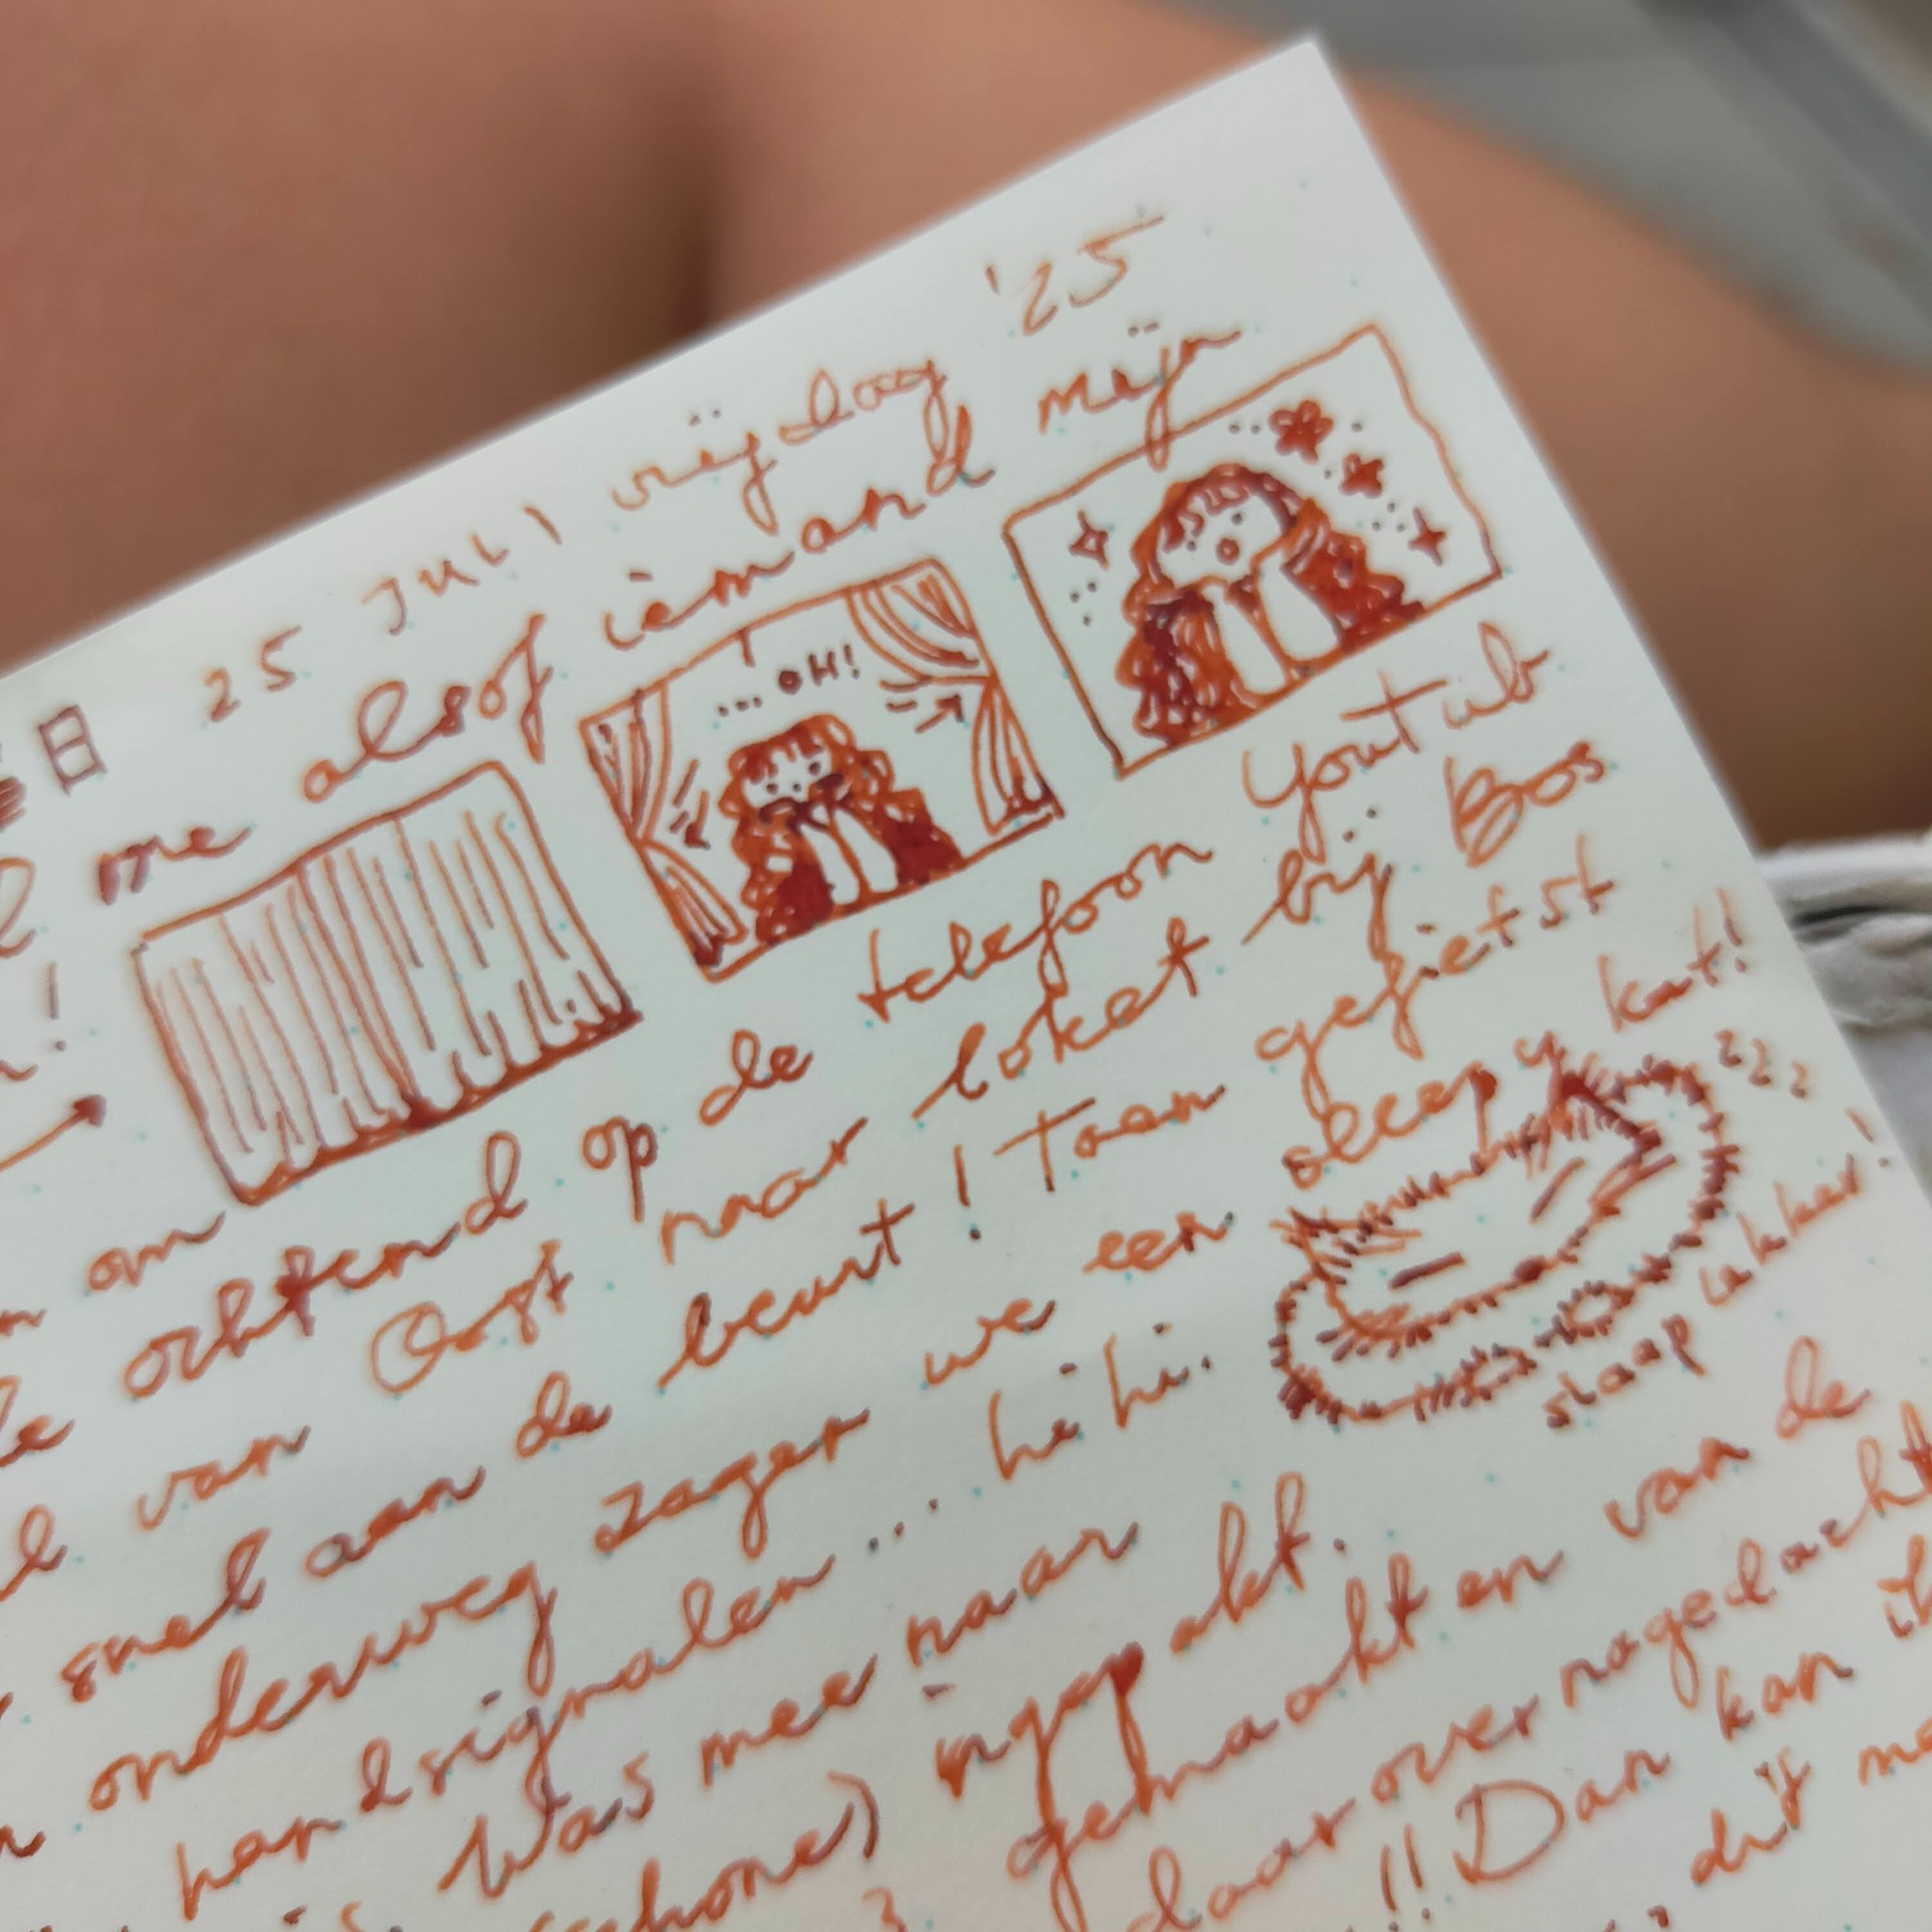 日 25 JULI vrijdag '25
me alsof iemand mijn
... OH!
om
ochtend op de telefoon Youtub
van Oost naar loket bij Bos
snel aan de beurt! Toen gefietst
onderweg zagen we een sleepy kat!
zzz
slaap lekker!
handsignalen... hihi.
Was mee naar
schone) ingepakt.
gemaakt en van de
daarover nagedacht
!! Dan kan ik